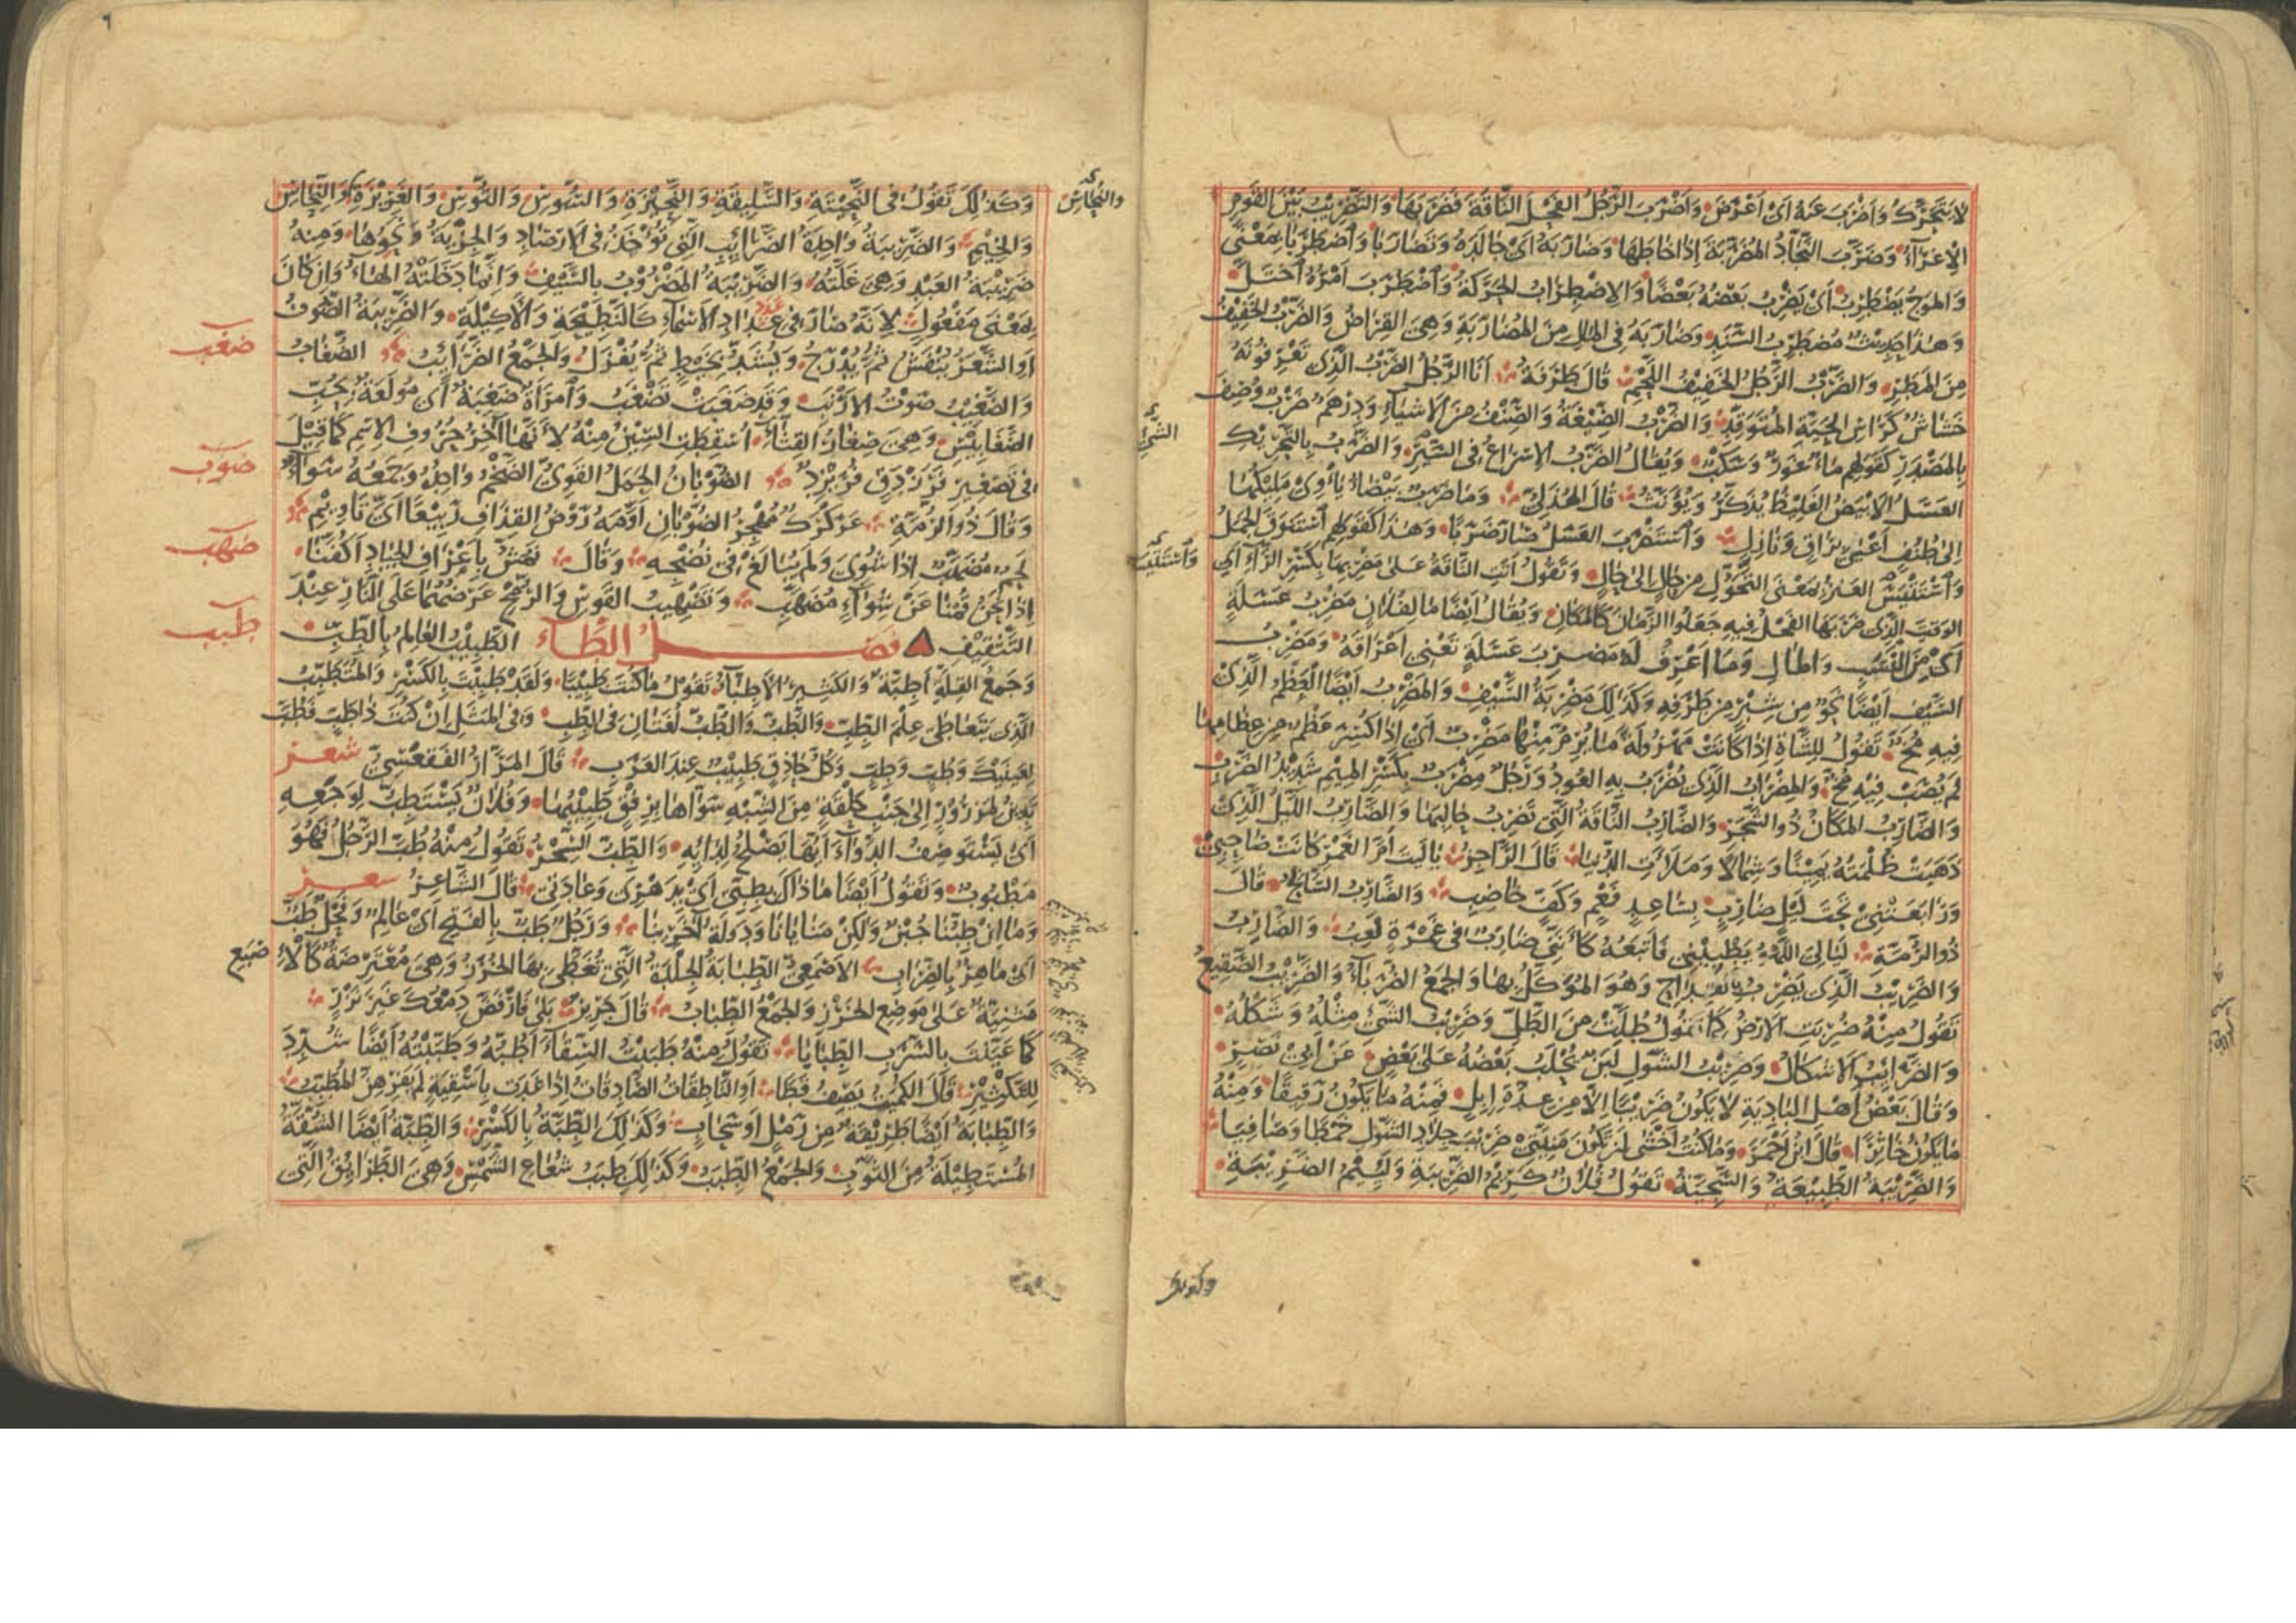 لا يتحرك وأضرب عنه أي أعرض وأضرب الرجل الفحل الناقة فضربها والتضريب بين القوم
الإغراء وضرب النجاد المضربة إذا خاطها وضاربه أي جالده وتضاربا واضطربا بمعنى
والموج يضطرب أي يضرب بعضه بعضا والاضطراب الحركة واضطرب أمره اختل
وهذا حديث مضطرب السند وضاربه في المال من المضاربة وهي القراض والضرب الخفيف
من المطر والضرب الرجل الخفيف اللحم قال طرفة أنا الرجل الضرب الذي تعرفونه
خشاش كرأس الحية المتوقد والضرب الصيغة والصنف من الأشياء ودرهم ضرب وصف
بالمصدر كقولهم ماء غور وسكب ويقال الضرب الإسراع في السير والضرب بالتحريك
العسل الأبيض الغليظ يذكر ويؤنث قال الهذلي وما ضرب بيضاء يأوي مليكها
إلى طنف أعيى براق ونازل واستضرب العسل صار ضربا وهذا كقولهم استنوق الجمل
واستتيس العنز بمعنى التحول من حال إلى حال وتقول أتت الناقة على مضربها بكسر الراء أي
الوقت الذي ضربها الفحل فيه جعلوا الزمان كالمكان ويقال أيضا ما لفلان مضرب عسلة
أي من النسب والمال وما أعرف له مضرب عسلة تعني أعراقه ومضرب
السيف أيضا نحو من شبر من طرفه وكذلك مضربة السيف والمضرب أيضا العظم الذي
فيه مخ تقول للشاة إذا كانت مهزولة ما يرم منها مضرب أي إذا كسر عظم من عظامها
لم يصب فيه مخ والمضراب الذي يضرب به العود ورجل مضرب بكسر الميم شديد الضرب
والضارب المكان ذو الشجر والضارب الناقة التي تضرب حالبها والضارب الليل الذي
ذهبت ظلمته يمينا وشمالا وملأت الدنيا قال الراجز يا ليت أم الغمر كانت صاحبي
ورابعتني تحت ليل ضارب بساعد فعم وكف خاضب والضارب السابح قال
ذو الرمة ليالي اللهو يطبيني فأتبعه كأنني ضارب في غمرة لعب والضارب
والضريب الذي يضرب بالقداح وهو الموكل بها والجمع الضرباء والضريب الصقيع
تقول منه ضربت الأرض كما تقول طلت من الطل وضريب الشيء مثله وشكله
والضرائب الأشكال وضريب الشول لبن يحلب بعضه على بعض عن أبي نصر
وقال بعض أهل البادية لا يكون ضريبا إلا من عدة إبل فمنه ما يكون رقيقا ومنه
ما يكون خاثرا قال ابن أحمر وما كنت أخشى أن تكون منيتي ضريب جلاد الشول خمطا وصافيا
والضريبة الطبيعة والسجية تقول فلان كريم الضريبة ولئيم الضريبة
الشيء
واستتيس
وكذلك
وكذلك تقول في النحيتة والسليقة والنحيزة والسوس والتوس والغريزة والنحاس
والخيم والضريبة واحدة الضرائب التي تؤخذ في الأرصاد والجزية ونحوها ومنه
ضريبة العبد وهي غلته والضريبة المضروب بالسيف وإنما دخلته الهاء وإن كان
بمعنى مفعول لأنه صار في عداد الأسماء كالنطيحة والأكيلة والضريبة الصوف
أو الشعر ينفش ثم يدرج ويشد بخيط ثم يغزل والجمع الضرائب الضغاب
والضغيب صوت الأرنب وقد ضغبت تضغب وامرأة ضغبة أي مولعة بحب
الضغابيس وهي صغار القثاء أسقطت السين منه لأنها آخر حروف الاسم كما قيل
في تصغير فرزدق فريزد الضوبان الجمل القوي الضخم واحده وجمعه سواء
وقال ذو الرمة عركرك مهجر الضوبان أومه روض القذاف ربيعا أي تأويم
لحم مضهب إذا شوي ولم يبالغ في نضجه وقال نمش بأعراف الجياد أكفنا
إذا نحن قمنا عن شواء مضهب وتضهيب القوس والرمح عرضهما على النار عند
التثقيف فصل الطاء الطبيب العالم بالطب
وجمع القلة أطبة والكثير الأطباء تقول ما كنت طبيبا ولقد طببت بالكسر والمتطبب
الذي يتعاطى علم الطب والطب والطب لغتان في الطب وفي المثل إن كنت ذا طب فطب
لعينيك وطب وطب وكل حاذق طبيب عند العرب قال المرار الفقعسي شعر
يدين لمزرور إلى جنب حلقة من الشبه سواها برفق طبيبها وفلان يستطب لوجعه
أي يستوصف الدواء أيها يصلح لدائه والطب السحر تقول منه طب الرجل فهو
مطبوب وتقول أيضا ما ذاك بطبي أي بدهري وعادتي قال الشاعر شعر
وما إن طبنا جبن ولكن منايانا ودولة آخرينا ورجل طب بالفتح أي عالم وفحل طب
أي ماهر بالضراب الأصمعي الطبابة الجلدة التي تغطي بها الخرز وهي معترضة كالإصبع
مثنية على موضع الخرز والجمع الطباب قال جرير بلى فارفض دمعك غير نزر
كما عينت بالسرب الطبابا تقول منه طببت السقاء أطبه وطببته أيضا شدد
للتكثير قال الكميت يصف قطا أو الناطقات الصادقات إذا غدت بأسقية لم يفرهن المطبب
والطبابة أيضا طريقة من رمل أو سحاب وكذلك الطبة بالكسر والطبة أيضا الشقة
المستطيلة من الثوب والجمع الطبب وكذلك طبب شعاع الشمس وهي الطرائق التي
والنحاس
ضغب
ضوب
ضهب
طبب